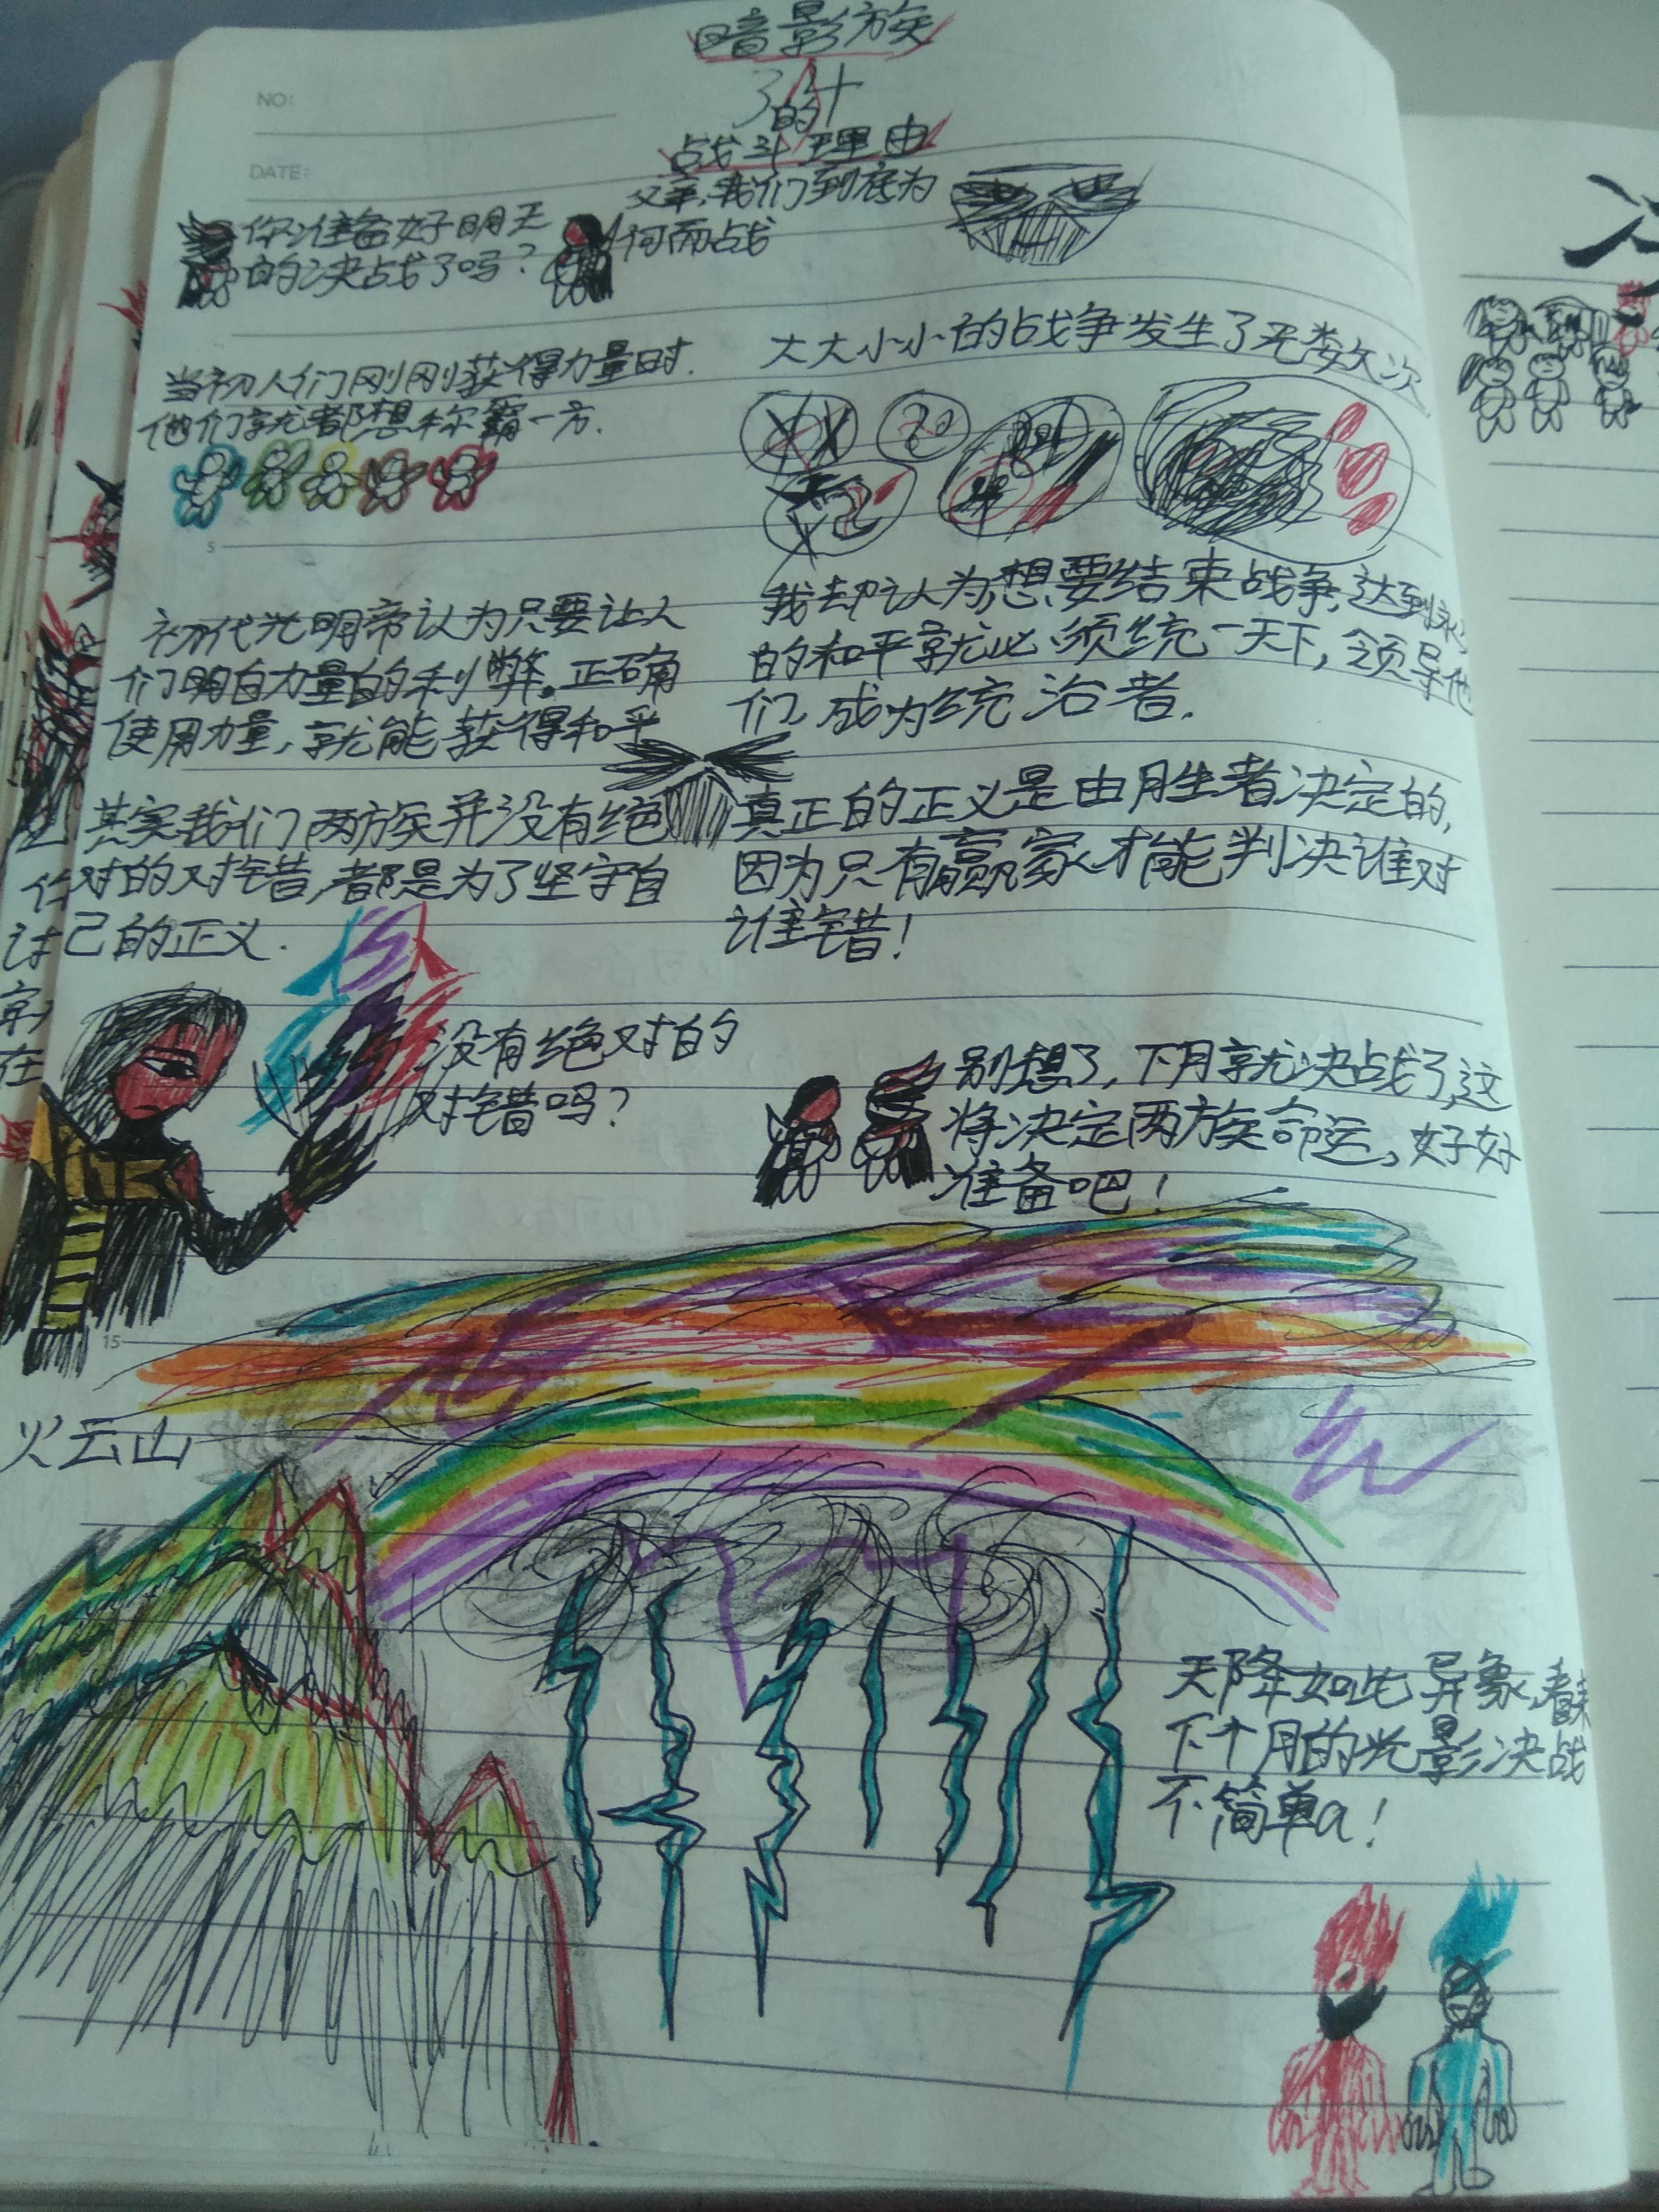 暗影族
的
战斗理由
NO:
DATE:
你准备好明天
的决战了吗?
父亲,我们到底为
何而战
当初人们刚刚获得力量时.
他们就都想称霸一方.
大大小小的战争发生了无数次
5
初代光明帝认为只要让人
们明白力量的利弊。正确
使用力量,就能获得和平
我却认为,想要结束战争,达到永
的和平就必须统一天下,领导他
们,成为统治者.
其实我们两族并没有绝
对的对错,都是为了坚守自
己的正义.
真正的正义是由胜者决定的,
因为只有赢家才能判决谁对
谁错!
没有绝对的
对错吗?
别想了,下月就决战了,这
将决定两族命运,好好
准备吧!
15
火云山
天降如此异象,看来
下个月的光影决战
不简单a!